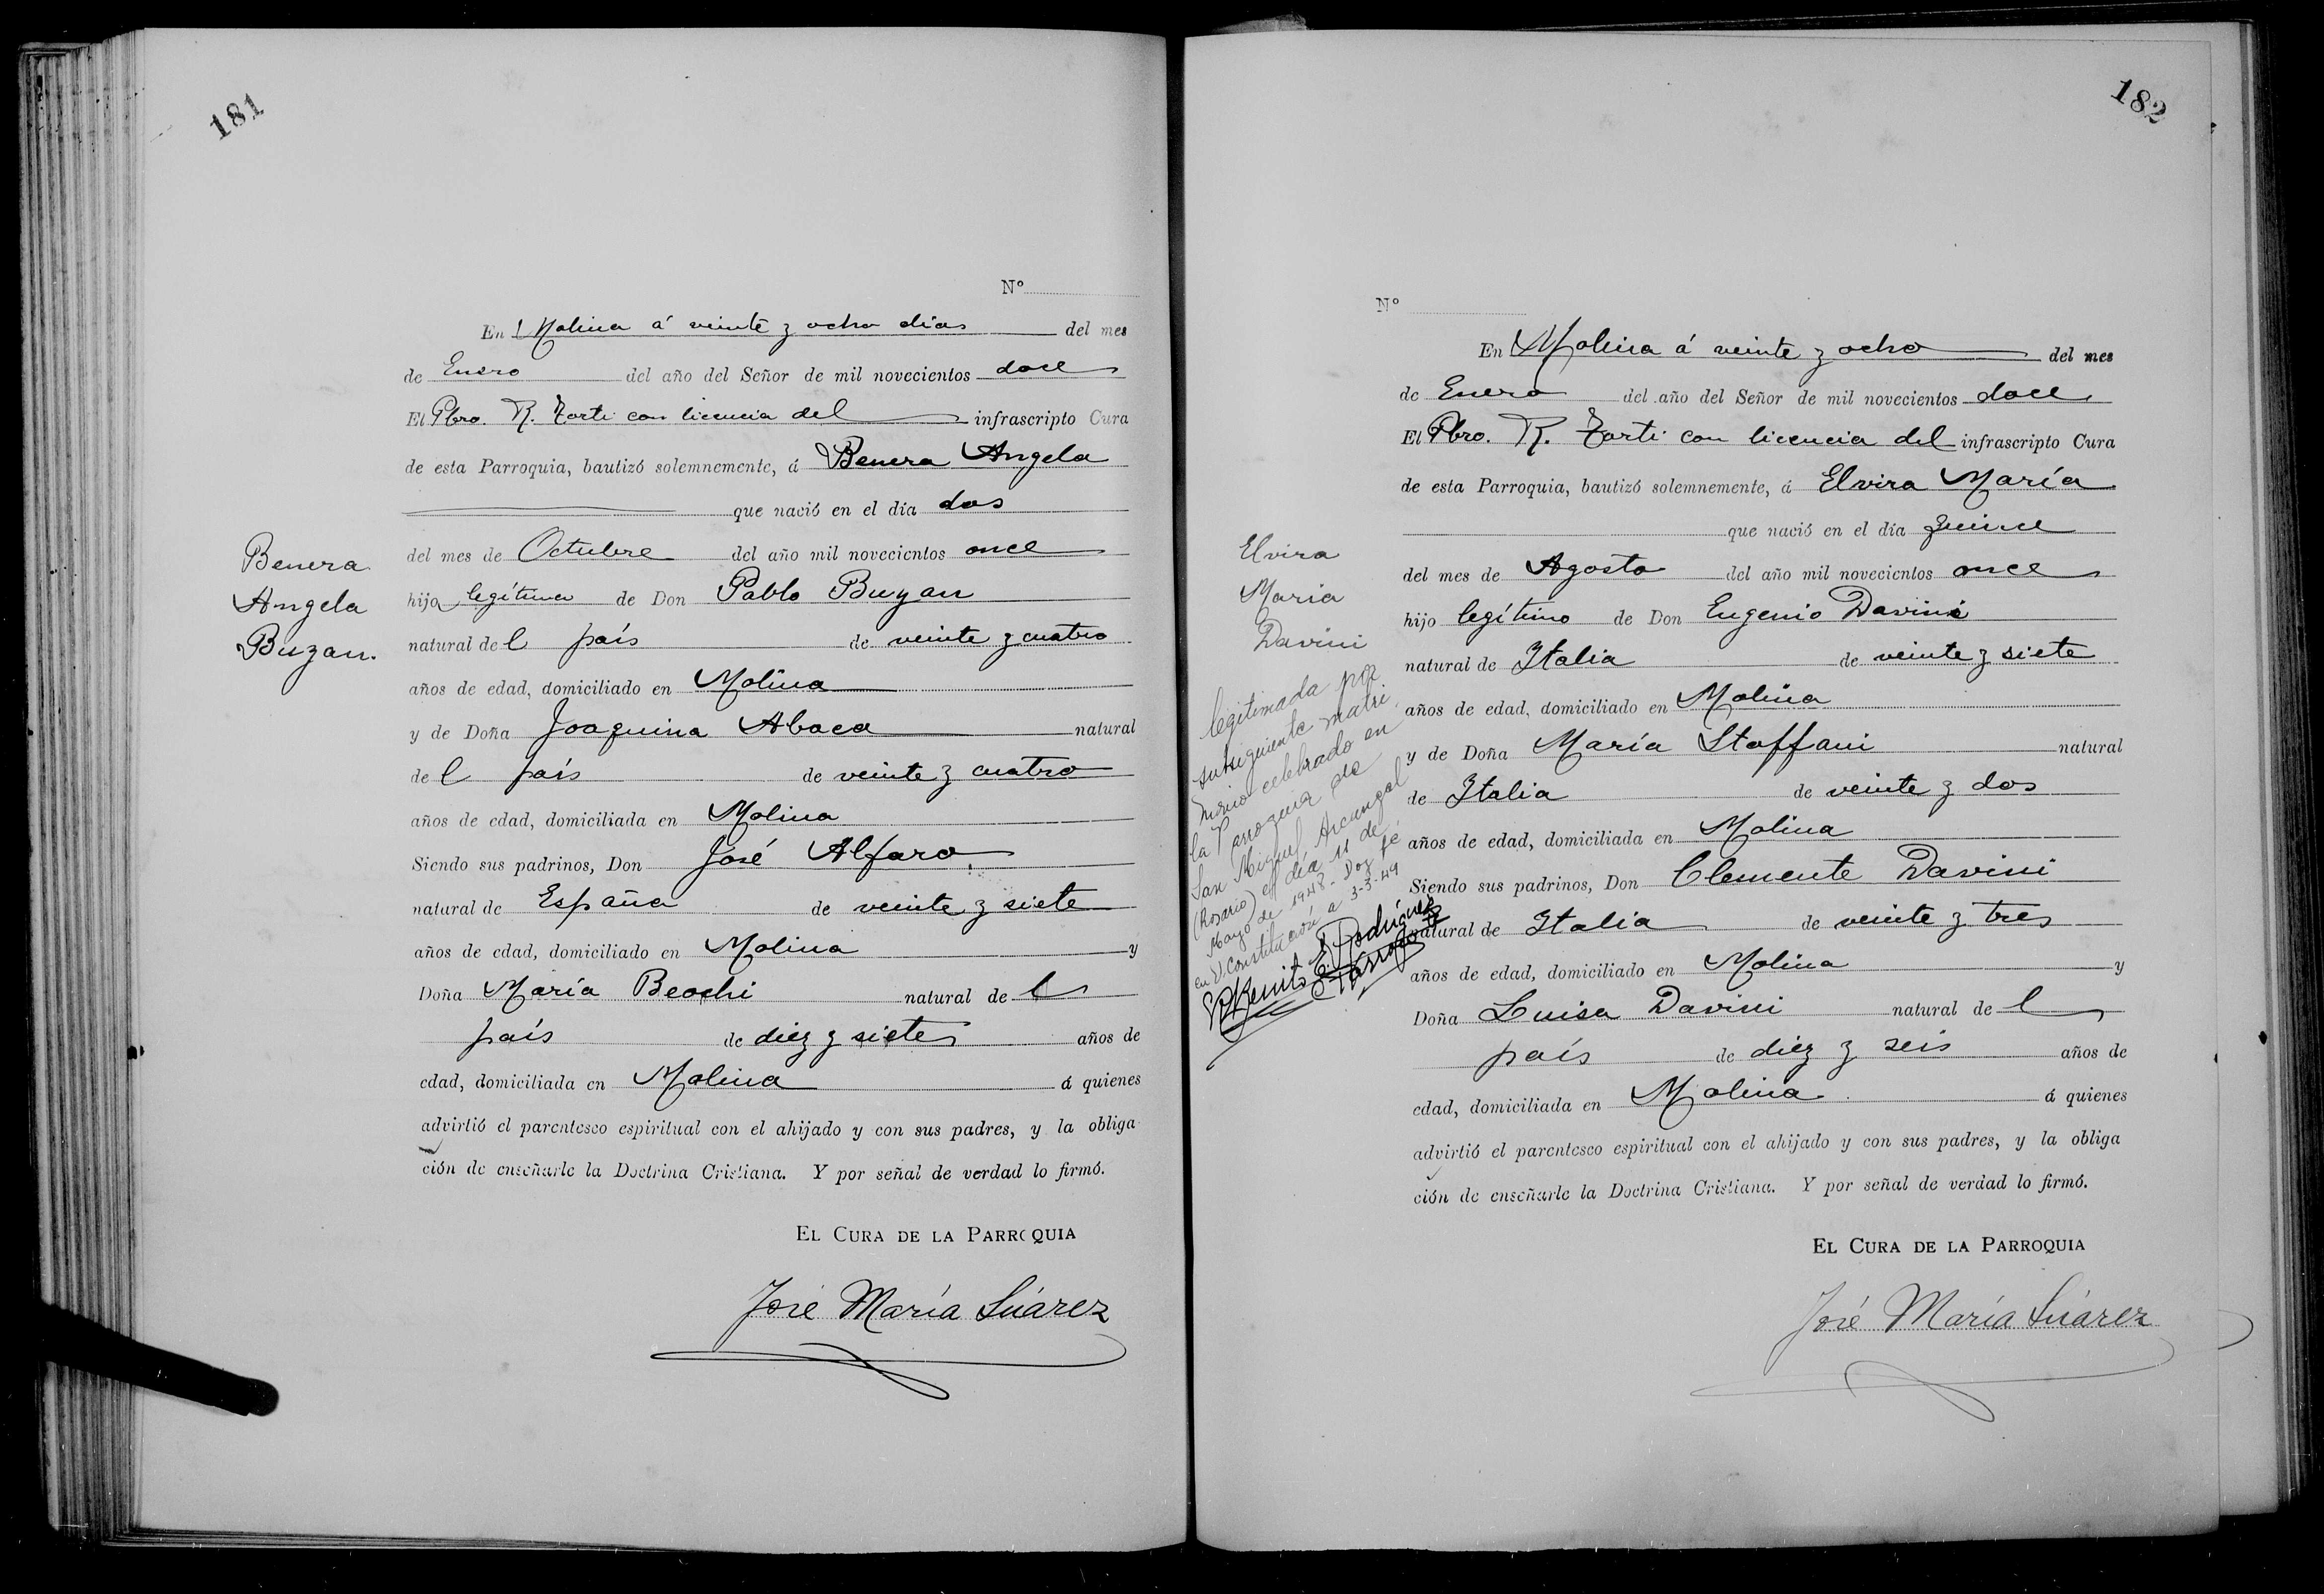 181
Nº
En Molina á veinte y ocho dias del mes
de Enero del año del Señor de mil novecientos doce
El Pbro. R. Torti con licencia del infrascripto Cura
de esta Parroquia, bautizó solemnemente, á Benera Angela
que nació en el día dos
del mes de Octubre del año mil novecientos once
hija legítima de Don Pablo Buzan
natural del país de veinte y cuatro
años de edad, domiciliado en Molina
y de Doña Joaquina Abaca natural
del país de veinte y cuatro
años de edad, domiciliada en Molina
Siendo sus padrinos, Don José Alfaro
natural de España de veinte y siete
años de edad, domiciliado en Molina y
Doña María Beochi natural del
país de diez y siete años de
edad, domiciliada en Molina á quienes
advirtió el parentesco espiritual con el ahijado y con sus padres, y la obliga
ción de enseñarle la Doctrina Cristiana. Y por señal de verdad lo firmó.
EL CURA DE LA PARROQUIA
José María Suárez
Benera
Angela
Buzan.
182
Nº
En Molina á veinte y ocho del mes
de Enero del año del Señor de mil novecientos doce
El Pbro. R. Torti con licencia del infrascripto Cura
de esta Parroquia, bautizó solemnemente, á Elvira María
que nació en el día quince
del mes de Agosto del año mil novecientos once
hijo legítimo de Don Eugenio Davini
natural de Italia de veinte y siete
años de edad, domiciliado en Molina
y de Doña María Stoffani natural
de Italia de veinte y dos
años de edad, domiciliada en Molina
Siendo sus padrinos, Don Clemente Davini
natural de Italia de veinte y tres
años de edad, domiciliado en Molina y
Doña Luisa Davini natural del
país de diez y seis años de
edad, domiciliada en Molina á quienes
advirtió el parentesco espiritual con el ahijado y con sus padres, y la obliga
ción de enseñarle la Doctrina Cristiana. Y por señal de verdad lo firmó.
EL CURA DE LA PARROQUIA
José María Suárez
Elvira
Maria
Davini
legitimada por
subsiguiente matri
monio celebrado en
la Parroquia de
San Miguel Arcangel
(Rosario) el día 11 de
Mayo de 1948. Doy fé
en V. Constitución a 3-3-49
Benito E. Rodríguez
Párroco